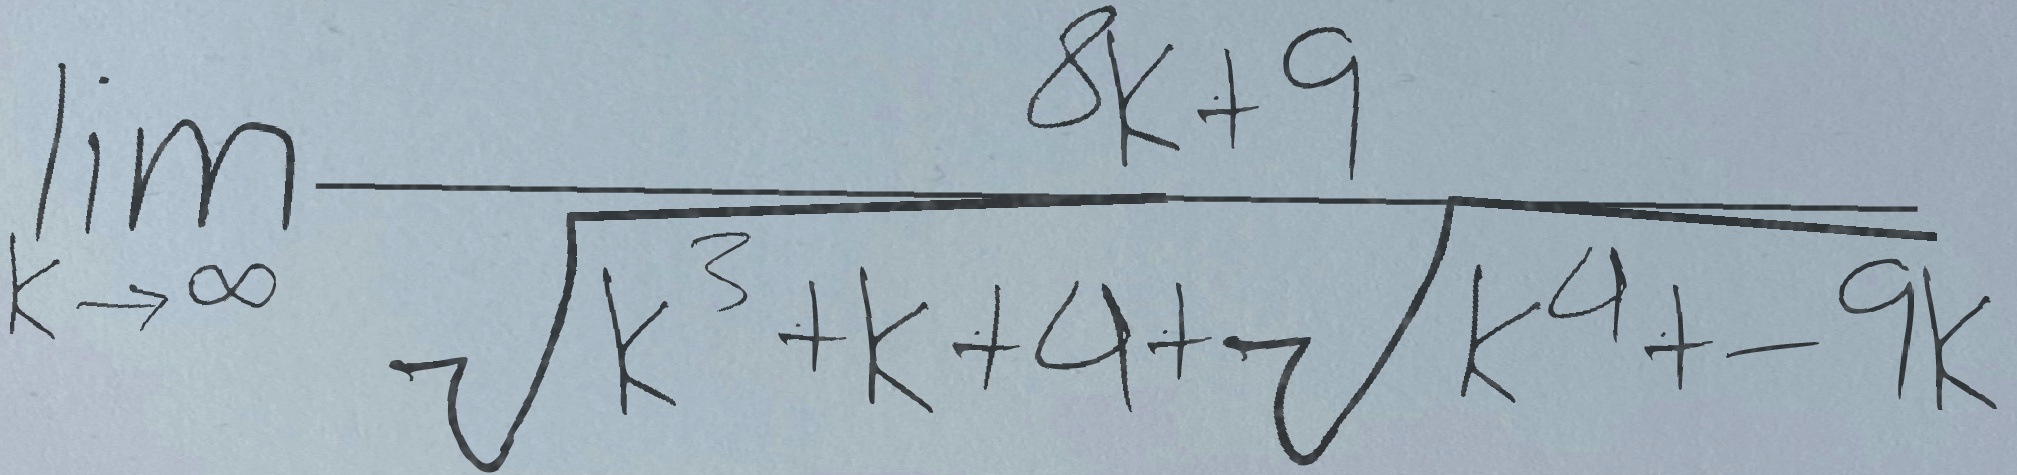 \lim_{k \to \infty} \frac{8k+9}{\sqrt{k^3+k+4}+\sqrt{k^4+-9k}}